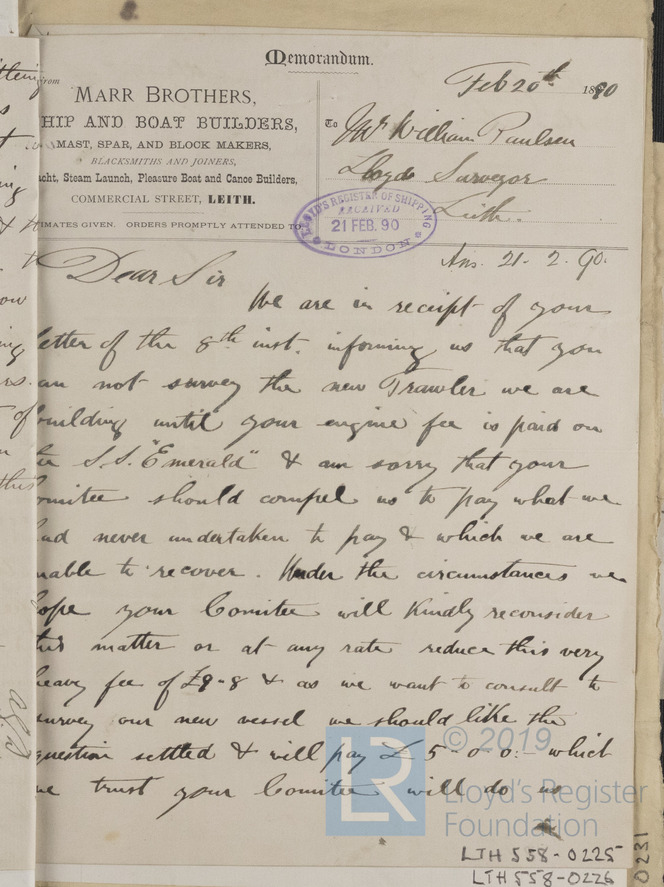 Memorandum.
From
MARR BROTHERS,
HIP AND BOAT BUILDERS,
MAST, SPAR, AND BLOCK MAKERS,
BLACKSMITHS AND JOINERS,
acht, Steam Launch, Pleasure Boat and Canoe Builders,
COMMERCIAL STREET, LEITH.
TIMATES GIVEN. ORDERS PROMPTLY ATTENDED TO
Feb 20th 1890
To Mr William Paulsen
Lloyds Surveyor
Leith.
LLOYD'S REGISTER OF SHIPPING
RECEIVED
21 FEB. 90
LONDON
Ans. 21-2.90.
Dear Sir
We are in receipt of your
letter of the 8th inst. informing us that you
an not survey the new Trawler we are
building until your engine fee is paid on
the S.S. "Emerald" & am sorry that your
omitee should compel us to pay what we
had never undertaken to pay & which we are
nable to recover. Under the circumstances we
hope your Comitee will kindly reconsider
this matter or at any rate reduce this very
heavy fee of £9-8 & as we want to consult to
survey our new vessel we should like the
question settled & will pay £5-0-0:- which
we trust your Comitee will do us
LR
© 2019
Lloyd's Register
Foundation
LTH558-0225
LTH558-0226
0231